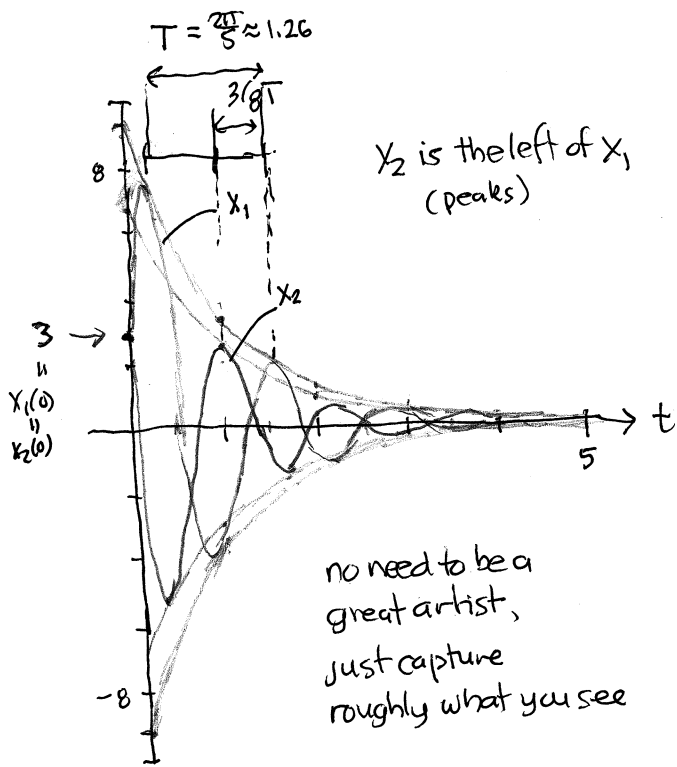 T = 2π/5 ≈ 1.26
3/8 T
x₂ is the left of x₁
(peaks)
8
x₁
x₂
3 →
=
x₁(0)
=
x₂(0)
t
5
no need to be a
great artist,
just capture
roughly what you see
-8